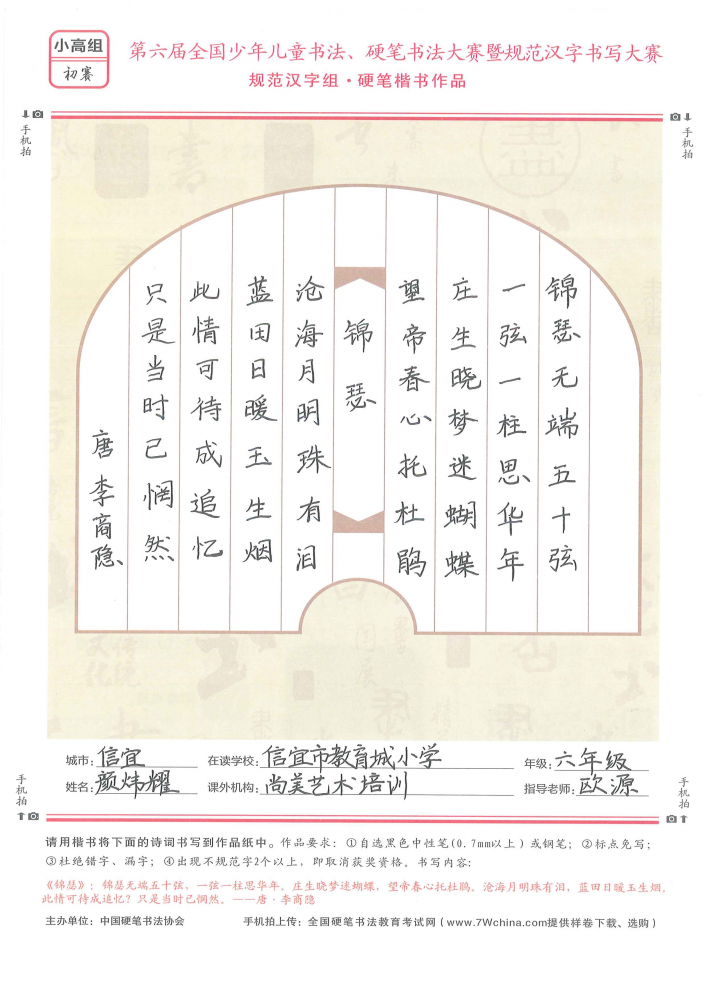 小高组
初赛
第六届全国少年儿童书法、硬笔书法大赛暨规范汉字书写大赛
规范汉字组·硬笔楷书作品
手机拍
手机拍
锦瑟无端五十弦
一弦一柱思华年
庄生晓梦迷蝴蝶
望帝春心托杜鹃
锦瑟
沧海月明珠有泪
蓝田日暖玉生烟
此情可待成追忆
只是当时已惘然
唐李商隐
城市：信宜 在读学校：信宜市教育城小学 年级：六年级
姓名：颜炜耀 课外机构：尚美艺术培训 指导老师：欧源
手机拍
手机拍
请用楷书将下面的诗词书写到作品纸中。作品要求：①自选黑色中性笔(0.7mm以上）或钢笔；②标点免写；
③杜绝错字、漏字；④出现不规范字2个以上，即取消获奖资格。书写内容：
《锦瑟》：锦瑟无端五十弦，一弦一柱思华年。庄生晓梦迷蝴蝶，望帝春心托杜鹃。沧海月明珠有泪，蓝田日暖玉生烟。
此情可待成追忆？只是当时已惘然。——唐·李商隐
主办单位：中国硬笔书法协会 手机拍上传：全国硬笔书法教育考试网（www.7Wchina.com提供样卷下载、选购）